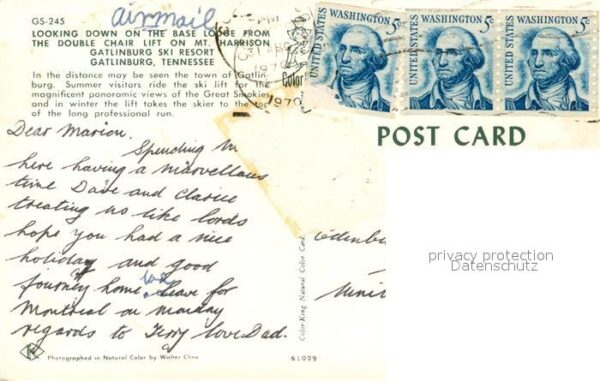 GS-245
airmail
LOOKING DOWN ON THE BASE LODGE FROM
THE DOUBLE CHAIR LIFT ON MT. HARRISON
GATLINBURG SKI RESORT
GATLINBURG, TENNESSEE
In the distance may be seen the town of Gatlin-
burg. Summer visitors ride the ski lift for the
magnificent panoramic views of the Great Smokies
and in winter the lift takes the skier to the top
of the long professional run.
PM
1970
1970
Color
UNITED STATES WASHINGTON 5c
UNITED STATES WASHINGTON 5c
UNITED STATES WASHINGTON 5c
POST CARD
Dear Marion.
Spending
here having a marvellous
time Dave and
treating us like lords
hope you had a nice
holiday and good
journey home. we leave for
Montreal on monday
regards to Terry love Dad.
Color-King Natural Color Card
privacy protection
Datenschutz
K
Photographed in Natural Color by Walter Cline
61029